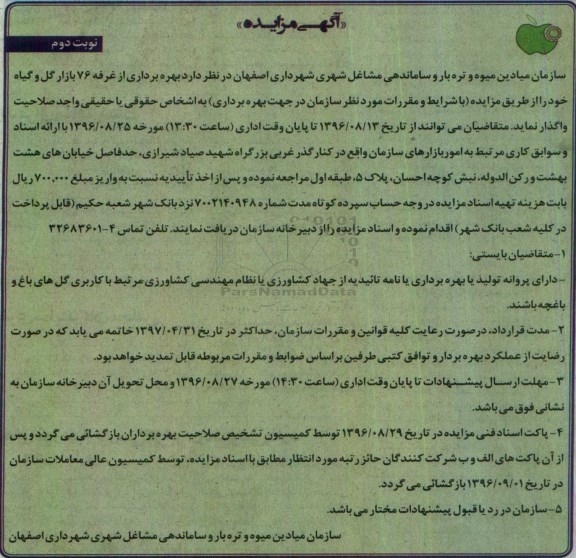 «آگهی مزایده»
نوبت دوم
سازمان میادین میوه و تره بار و ساماندهی مشاغل شهری شهرداری اصفهان در نظر دارد بهره برداری از غرفه ۷۶ بازار گل و گیاه
خود را از طریق مزایده (با شرایط و مقررات مورد نظر سازمان در جهت بهره برداری) به اشخاص حقوقی یا حقیقی واجد صلاحیت
واگذار نماید. متقاضیان می توانند از تاریخ ۱۳۹۶/۰۸/۱۳ تا پایان وقت اداری (ساعت ۱۳:۳۰) مورخه ۱۳۹۶/۰۸/۲۵ با ارائه اسناد
و سوابق کاری مرتبط به امور بازارهای سازمان واقع در کنار گذر غربی بزرگراه شهید صیاد شیرازی، حدفاصل خیابان های هشت
بهشت و رکن الدوله، نبش کوچه احسان، پلاک ۵، طبقه اول مراجعه نموده و پس از اخذ تأییدیه نسبت به واریز مبلغ ۷۰۰،۰۰۰ ریال
بابت هزینه تهیه اسناد مزایده در وجه حساب سپرده کوتاه مدت شماره ۷۰۰۲۱۴۰۹۴۸ نزد بانک شهر شعبه حکیم (قابل پرداخت
در کلیه شعب بانک شهر) اقدام نموده و اسناد مزایده را از دبیرخانه سازمان دریافت نمایند. تلفن تماس ۴-۳۲۶۸۳۶۰۱
۱- متقاضیان بایستی:
- دارای پروانه تولید یا بهره برداری یا نامه تائیدیه از جهاد کشاورزی یا نظام مهندسی کشاورزی مرتبط با کاربری گل های باغ و
باغچه باشند.
ParsNamadData
۲- مدت قرارداد، درصورت رعایت کلیه قوانین و مقررات سازمان، حداکثر در تاریخ ۱۳۹۷/۰۴/۳۱ خاتمه می یابد که در صورت
رضایت از عملکرد بهره بردار و توافق کتبی طرفین براساس ضوابط و مقررات مربوطه قابل تمدید خواهد بود.
۳- مهلت ارسال پیشنهادات تا پایان وقت اداری (ساعت ۱۴:۳۰) مورخه ۱۳۹۶/۰۸/۲۷ و محل تحویل آن دبیرخانه سازمان به
نشانی فوق می باشد.
۴- پاکت اسناد فنی مزایده در تاریخ ۱۳۹۶/۰۸/۲۹ توسط کمیسیون تشخیص صلاحیت بهره برداران بازگشائی می گردد و پس
از آن پاکت های الف و ب شرکت کنندگان حائز رتبه مورد انتظار مطابق با اسناد مزایده، توسط کمیسیون عالی معاملات سازمان
در تاریخ ۱۳۹۶/۰۹/۰۱ بازگشائی می گردد.
۵- سازمان در رد یا قبول پیشنهادات مختار می باشد.
سازمان میادین میوه و تره بار و ساماندهی مشاغل شهری شهرداری اصفهان